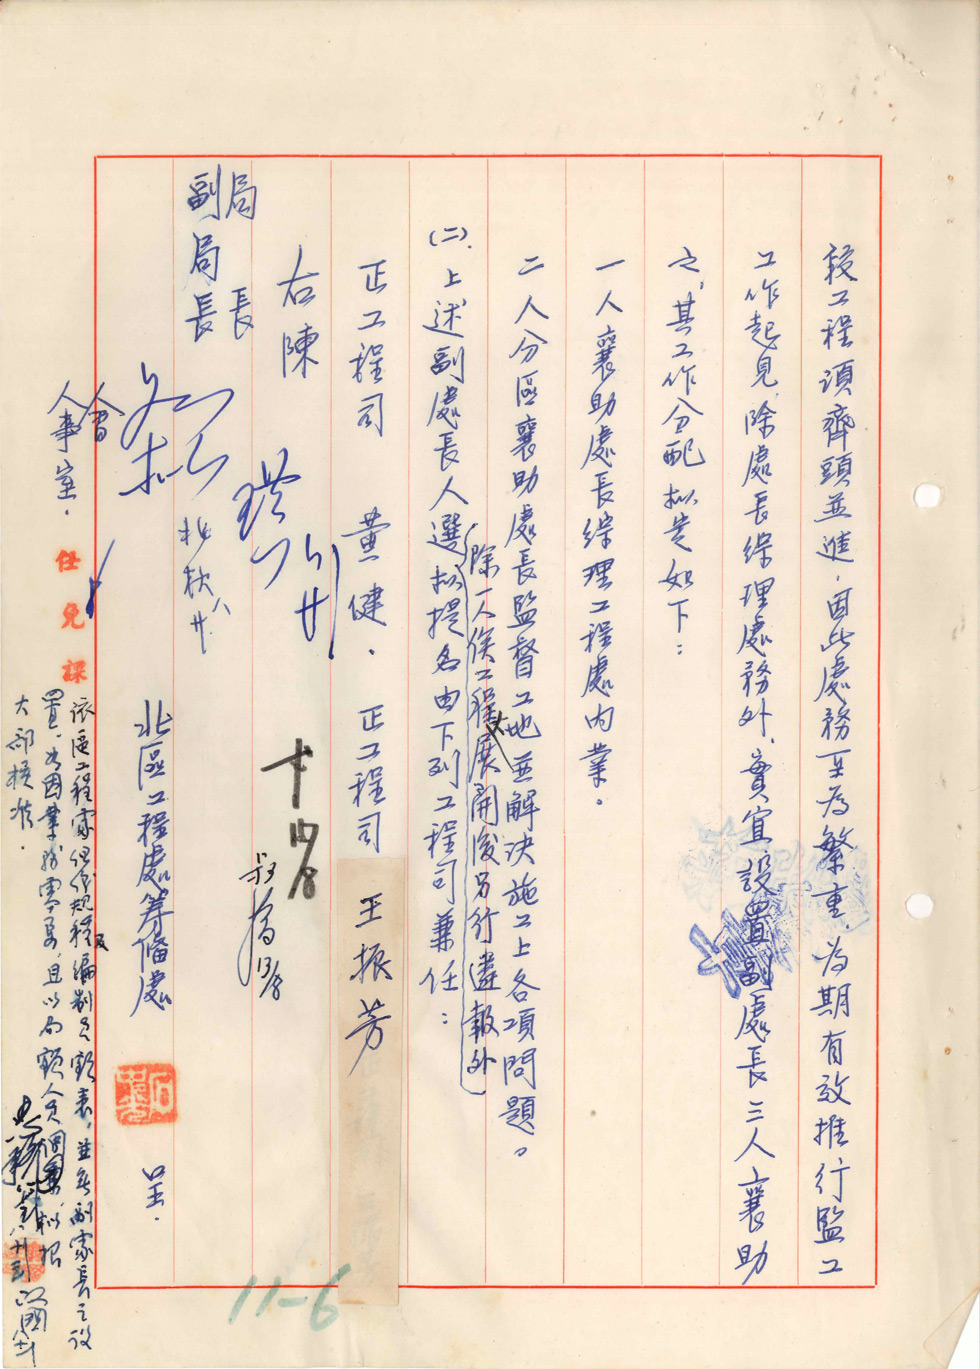 段工程須齊頭並進．因此處務至為繁重．為期有效推行監工
工作起見．除處長綜理處務外．實宜設置副處長三人襄助
之，其工作分配拟定如下：
一人襄助處長綜理工程處內業。
二人分區襄助處長監督工地並解決施工上各項問題。
(二)．上述副處長人選拟提名由下列工程司兼任：
除一人俟工程展開後另行遴報外
正工程司 黃健． 正工程司 王振芳
右陳
局長
副局長
13/8
北區工程處籌備處 呈．
會
人事室．
任免課
該區工程處組織規程及編制員額表，並無副處長之設
置，如因業務需要，且以局額人員調兼，拟報
大部核准．
11-6